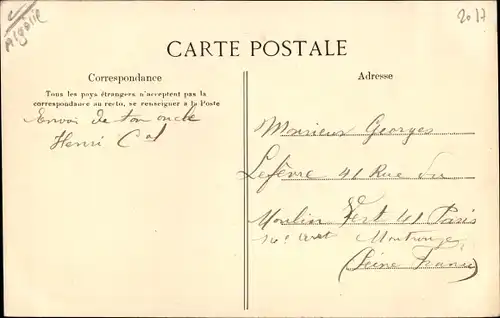 Algérie
2017
CARTE POSTALE
Correspondance
Adresse
Tous les pays étrangers n'acceptent pas la
correspondance au recto, se renseigner à la Poste
Envoi de ton oncle
Henri
Monsieur Georges
Lefèvre 41 Rue du
Moulin Vert 41 Paris
Montrouge
(Seine France)